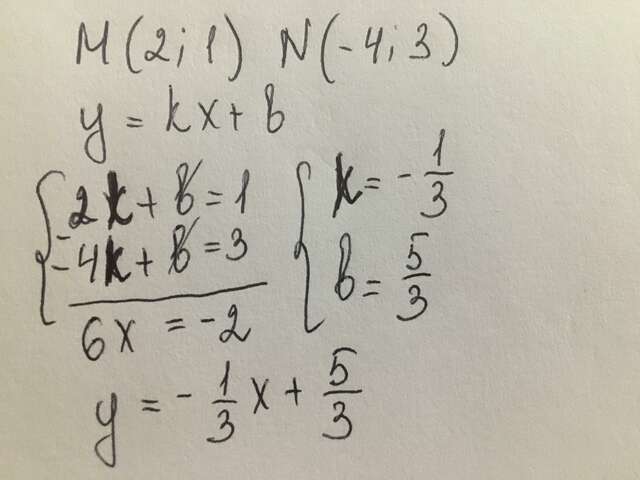 M(2;1) N(-4;3)
y = kx + b
{ 2k + b = 1
- -4k + b = 3
6x = -2
{ k = -1/3
b = 5/3
y = -1/3 x + 5/3